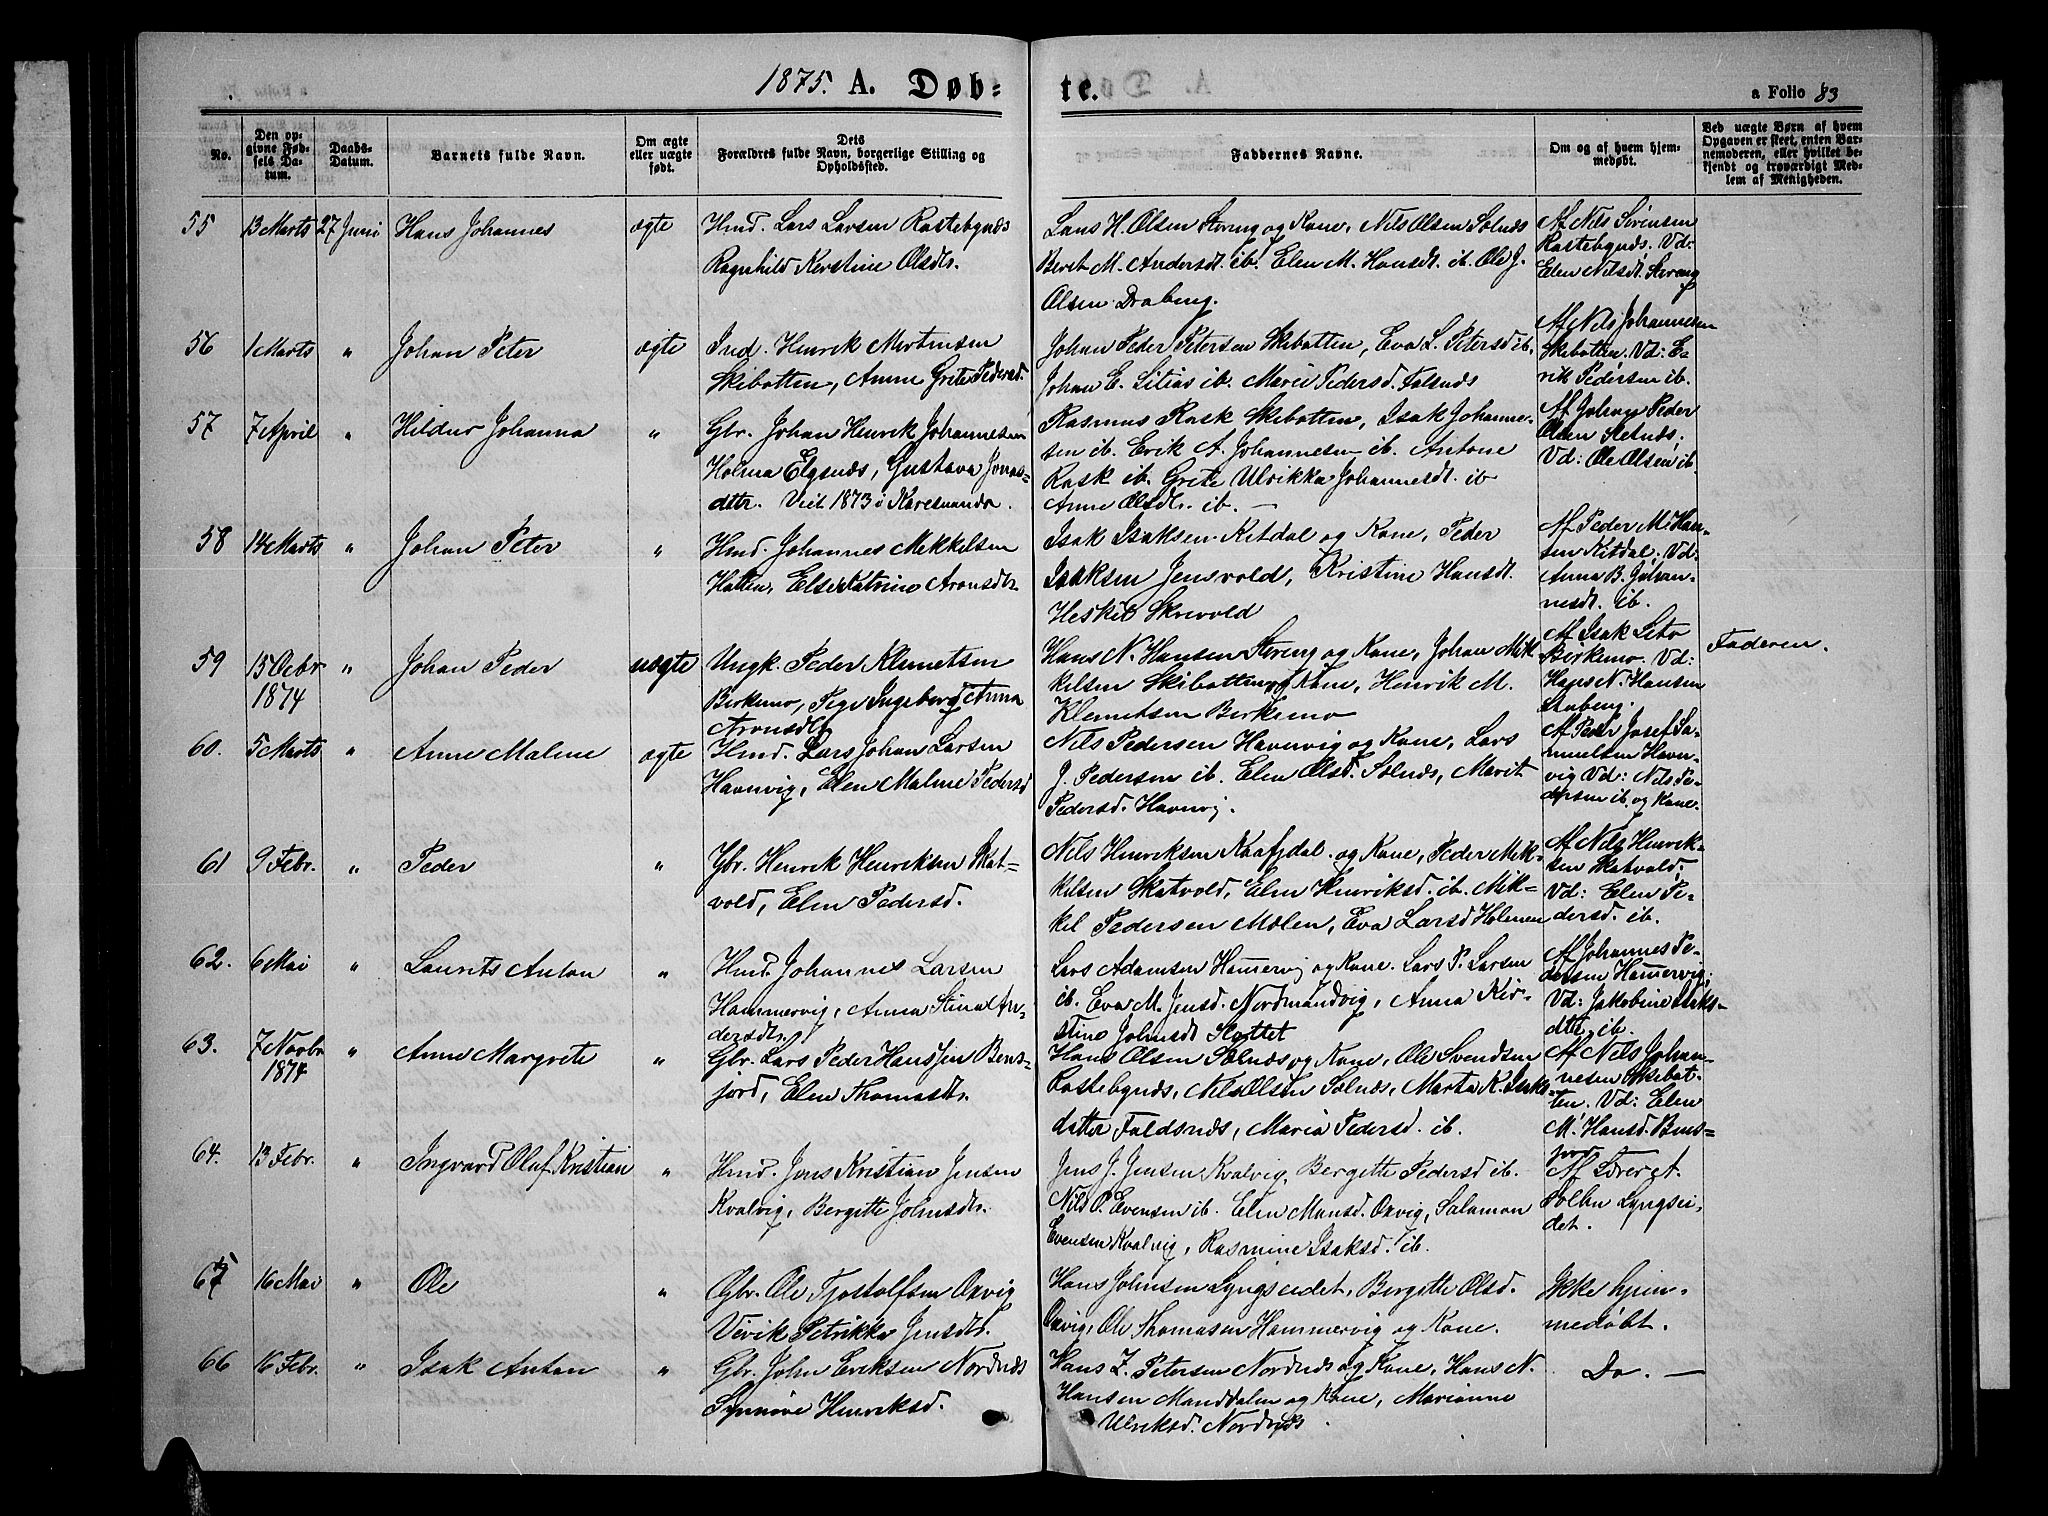 1875. A. Døb=
te.
a Folio 83
No.
Den op=
givne Fød=
sels Da=
tum.
Daabs=
Datum.
Barnets fulde Navn.
Om ægte
eller uægte
født.
Dets
Forældres fulde Navn, borgerlige Stilling og
Opholdssted.
Faddernes Navne.
Om og af hvem hjem=
medøbt.
Ved uægte Børn af hvem
Opgaven er skeet, enten Bar=
nemoderen, eller hvilket be=
kjendt og troværdigt Med=
lem af Menigheden.
55 13 Marts 27 Juni Hans Johannes ægte
Hmd. Lars Larsen Rastebynæs
Ragnhild Kerstine Olsdtr.
Lars H. Olsen Steeng og Kone, Nils Olsen Solnæs
Beret M. Andersdt. ib. Elen M. Hansdt. ib. Ole J.
Olsen Draberg.
Af Nils Sørensen
Rastebynæs. Vd:
Elen Nilsdt.
56 1 Marts " Johan Peter ægte
Ind. Henrik Mortensen
Skibotten, Anne Grete Pedersd.
Johan Peder Petersen Skibotten, Eva L. Petersd ib.
Johan E. Sitias ib. Marie Pedersd. Falsnæs
Af Nils Johannesen
Skibotten. Vd: E-
rik Pedersen ib.
57 7 April " Hildur Johanna "
Gbr. Johan Henrik Johannesen
Holma Elgsnæs, Gustava Jonas-
dttr. Viet 1873 i Karesuando.
Rasmus Rask Skibotten, Isak Johanne-
sen ib. Erik A. Johannesen ib. Antone
Rask ib. Grete Ulrikka Johannesdt. ib
Anne Olsdt. ib. —
Af Johan Peder
Olsen
Vd: Ole Olsen ib.
58 14 Marts " Johan Peter "
Hmd. Johannes Mekkelsen
Hatten, Else Katrine Aronsdtr.
Isak Isaksen Kitdal og Kone, Peder
Isaksen Jensvold, Kristine Hansdt.
Heskil Skrivold
Af Peder M. Han-
sen Kitdal. Vd:
Anna B. Johan-
nesdt. ib.
59 15 Octbr 1874 " Johan Peder uægte
Ungk. Peder Klemetsen
Birkemo, Pige Ingeborg Anna
Aronsdtr.
Hans N. Hansen Steeng og Kone, Johan Mik-
kelsen Skibotten og Kone, Henrik M.
Klemetsen Birkemo
Af Isak Sito
Birkemo. Vd:
Hans N. Hansen
Faderen.
60. 5 Marts " Anne Malene ægte
Hmd. Lars Johan Larsen
Havnvig, Elen Malene Pedersd
Nils Pedersen Havnvig og Kone, Lars
J. Pedersen ib. Elen Olsd. Solnæs, Marit
Pedersd. Havnvig.
Af Peder Josef Sa-
muelsen Havn-
vig Vd: Nils Pe-
dersen ib. og Kone.
61 9 Febr. " Peder "
Gbr. Henrik Henriksen Skat-
vold, Elen Pedersd.
Nils Henriksen Kaafjdal og Kone, Peder Mik-
kelsen Skatvold, Elen Henriksd. ib. Mik-
kel Pedersen Molen, Eva Larsd Holmen
Af Nils Henrik-
sen Skatvold,
Vd: Elen Pe-
dersd. ib.
62. 6 Mai " Laurits Anton "
Hmd. Johannes Larsen
Hammervig, Anna Stina An-
dersdtr.
Lars Adamsen Ham̄ervig og Kone. Lars P. Larsen
ib. Eva M. Jensd. Nordmandvig, Anna Kir-
stine Johnsdt Slottet
Af Johannes Pe-
dersen Ham̄ervig;
Vd: Jakobine Isaks-
dttr. ib.
63. 7 Novbr 1874 " Anne Margrete "
Gbr. Lars Peder Hanssen Bens-
jord, Elen Thomasdtr.
Hans Olsen Solnæs og Kone, Ole Svendsen
Rastebynæs, Nils Olsen Solnæs, Marta K. Isaks-
datter Faldsnæs, Maria Pedersd. ib.
Af Nils Johan-
nesen Skibot-
ten. Vd: Elen
M. Hansd. Bens-
jord
64. 13 Febr. " Ingvard Oluf Kristian "
Hmd. Jens Kristian Jensen
Kvalvig, Bergitte Johnsdtr.
Jens J. Jensen Kvalvig, Bergitte Pedersd ib.
Nils P. Evensen ib. Elen Monsd. Oxvig, Salamon
Evensen Kvalvig, Rasmine Isaksd. ib.
Af Lærer A.
Solbu Lyngsei-
det.
65 16 Mai " Ole "
Gbr. Ole Tjostolfsen Oxvig
Vivik Petrikke Jensdtr.
Hans Johnsen Lyngseidet, Bergitte Olsd.
Oxvig, Ole Thomasen Hammervig og Kone.
Ikke hjem-
medøbt.
66 16 Febr. " Isak Anton "
Gbr. John Eriksen Nordnæs
Synnøve Henriksd.
Hans Z. Petersen Nordnæs og Kone, Hans N.
Hansen Manddalen og Kone, Marianne
Ulriksd. Nordnæs
Do. —